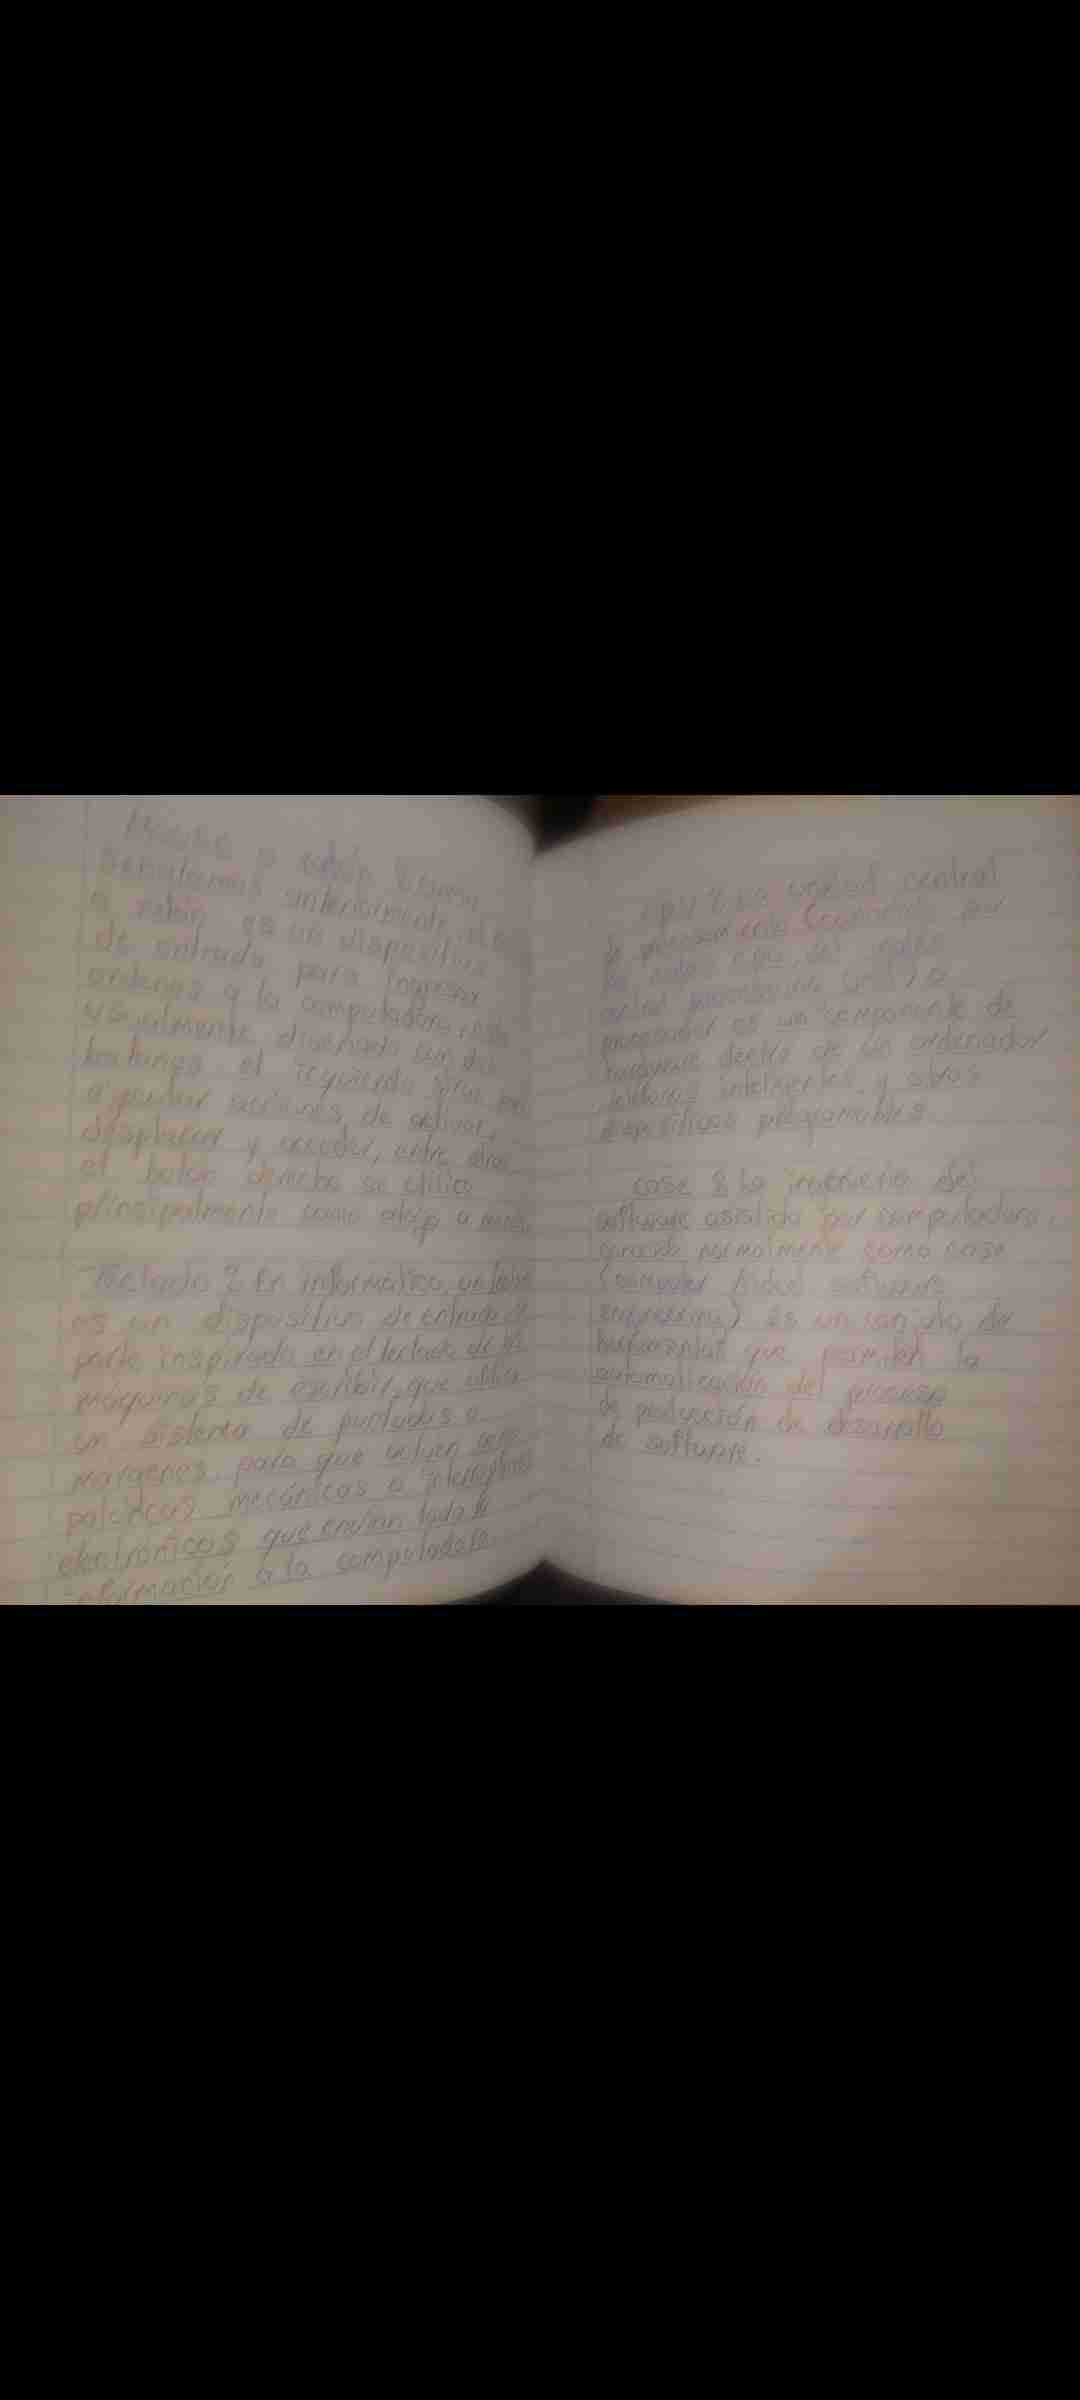 Mouse o ratón : como
señalamos anteriormente, el
o ratón es un dispositivo
de entrada para ingresar
ordenes a la computadora, está
usualmente diseñado con dos
botones el izquierdo sirve
ejecutar acciones de activar,
desplazar y acceder, entre otras
el botón derecho se utiliza
principalmente como atajo a
Teclado : En informática, un
es un dispositivo de entrada
parte inspirado en el teclado de
máquinas de escribir, que utiliza
un sistema de puntadas o
margenes, para que actuen
palancas mecánicas o
electronicos que envían toda la
información a la computadora.
cpu : La unidad central
de procesamiento (conocida por
las siglas cpu, del inglés
processing unit) o
procesador es un componente de
hardware dentro de un ordenador
teléfonos inteligentes, y otros
dispositivos programables
case : La ingenieria del
software asistida por computadora,
conocida normalmente como case
(computer Aided software
engineering) es un conjunto de
herramientas que permiten la
automatización del proceso
de producción de desarrollo
de software.